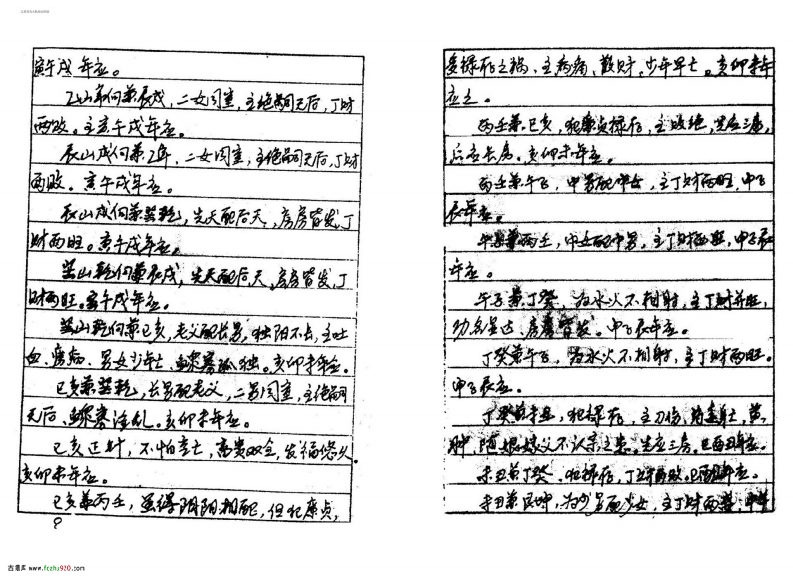 寅午戌年应。
乙山辛向兼辰戌，二女同室，主绝嗣无后，丁财
两败。主寅午戌年应。
辰山戌向兼乙辛，二女同室，主绝嗣无后，丁财
两败。寅午戌年应。
辰山戌向兼巽乾，先天配后天，房房皆发，丁
财两旺。寅午戌年应。
巽山乾向兼辰戌，先天配后天，房房皆发，丁
财两旺。寅午戌年应。
巽山乾向兼巳亥，老父配长男，独阳不长，主吐
血、痨病、男女少年亡，鳏寡孤独。亥卯未年应。
巳亥兼巽乾，长男配老父，二男同室，主绝嗣
无后、鳏寡淫乱。亥卯未年应。
巳亥正针，不怕空亡，富贵双全，发福悠久。
亥卯未年应。
巳亥兼丙壬，虽得阴阳相配，但犯廉贞，
8
多禄存之祸，主病痛、散财、少年早亡。亥卯未年
应之。
丙壬兼巳亥，犯廉贞禄存，主败绝，先应三房，
后应长房。亥卯未年应。
丙壬兼午子，中男配中女，主丁财两旺，申子
辰年应。
午子兼丙壬，中女配中男，主丁财两旺，申子辰
年应。
午子兼丁癸，为水火不相射，主丁财并旺，
功名显达，房房皆发。申子辰年应。
丁癸兼午子，为水火不相射，主丁财两旺。
申子辰应。
丁癸兼未丑，犯禄存，主刀伤、
肿，随娘嫁父不认亲之患。先应三房。巳酉丑年应。
未丑兼丁癸，犯禄存，丁财两败。巳酉丑年应。
未丑兼艮坤，为少男配少女，主丁财两
古易库 www.fczhu920.com